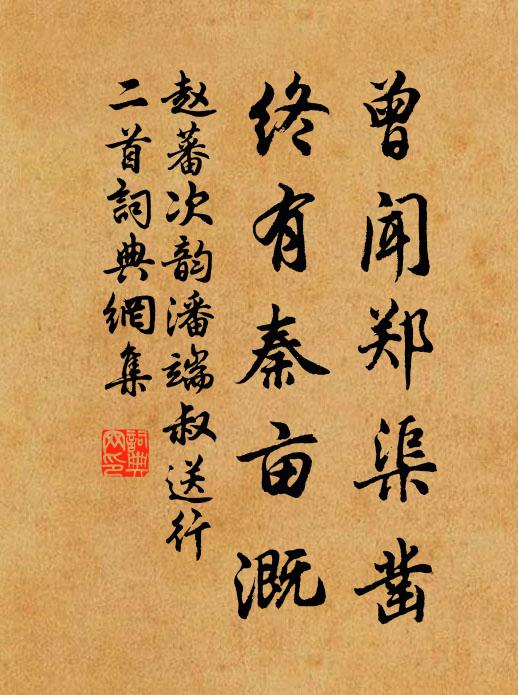 曾闻郑渠凿
终有秦亩溉
赵蕃次韵潘端叔送行
二首詞典網集
詞典网印